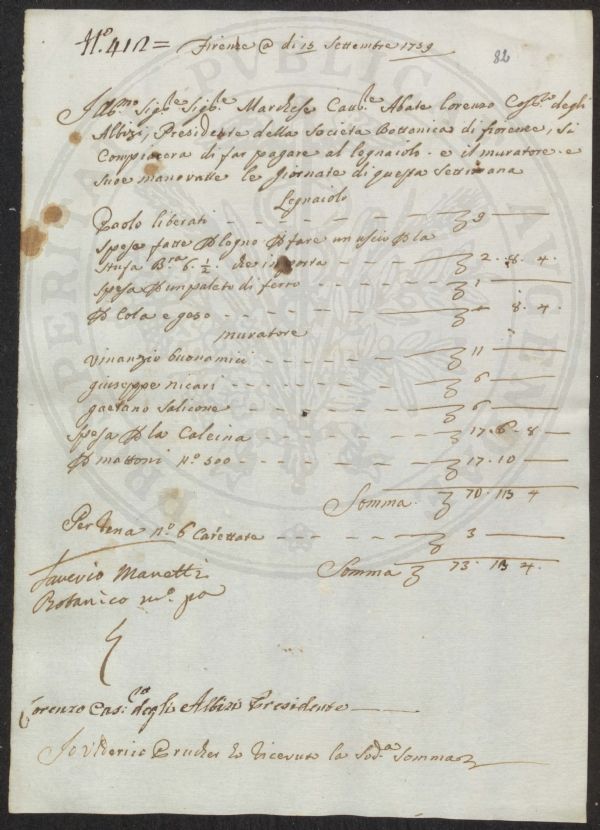 N.o 412 = Firenze @ di 15 Settembre 1759
82
Ill.mo Sig.re Sig.re Marchese Cau.re Abate Lorenzo Cas.ra degli
Albizi, Presidente della Società Bottanica di fiorenze, si
Compiacerà di far pagare al legnaiolo e il muratore e
suoe manovalle le Giornate di questa Settimana
Legnaiolo
Paolo liberati 9
Spese fatte P legno P fare un uscio P la
stufa B.ra 6 ½ che importa 2. 8. 4.
Spesa P un paleto di ferro 1
P Cola e geso 8. 4.
muratore
Vinanzio buonamici 11
giuseppe nicari 6
gaetano salicone 6
Spesa P la Calcina 17. 6. 8
P mattoni n.o 500 17. 10
Somma 70. 13 4
Per rena n.o 6 Carettate 3
Somma 73. 13 4.
Saverio Manetti
Botanico m.o pa
Lorenzo Cas.ra degli Albizi Presidente
Io Ulderico Prucher ho ricevuto la Sod.a Somma